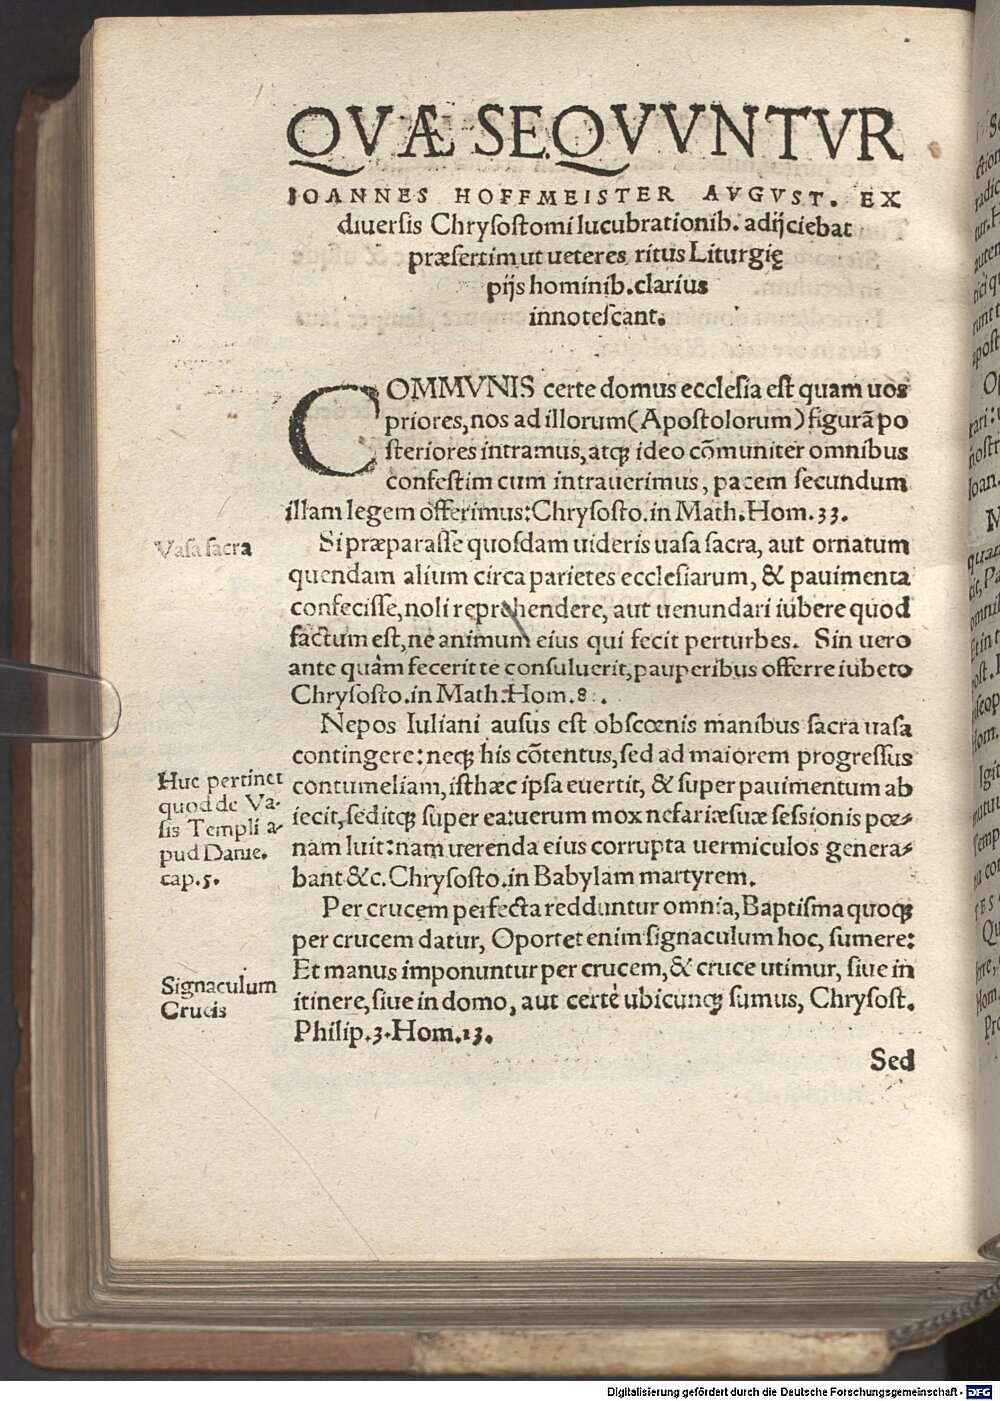 QVÆ SEQVVNTVR
IOANNES HOFFMEISTER AVGVST. EX
diuersis Chrysostomi lucubrationib. adijciebat
præsertim ut ueteres ritus Liturgię
pijs hominib. clarius
innotescant.
COMMVNIS certe domus ecclesia est quam uos
priores, nos ad illorum (Apostolorum) figurā po
steriores intramus, atq; ideo cōmuniter omnibus
confestim cum intrauerimus, pacem secundum
illam legem offerimus: Chrysosto. in Math. Hom. 33.
Vasa sacra
Si præparasse quosdam uideris uasa sacra, aut ornatum
quendam alium circa parietes ecclesiarum, & pauimenta
confecisse, noli reprehendere, aut uenundari iubere quod
factum est, ne animum eius qui fecit perturbes. Sin uero
ante quàm fecerit te consuluerit, pauperibus offerre iubeto
Chrysosto. in Math. Hom. 8 .
Nepos Iuliani ausus est obscœnis manibus sacra uasa
contingere: neq; his cōtentus, sed ad maiorem progressus
Huc pertinet
quod de Va-
sis Templi a-
pud Danie.
cap. 5.
contumeliam, isthæc ipsa euertit, & super pauimentum ab
iecit, seditq; super ea: uerum mox nefariæ suæ sessionis pœ-
nam luit: nam uerenda eius corrupta uermiculos genera-
bant &c. Chrysosto. in Babylam martyrem.
Per crucem perfecta redduntur omnia, Baptisma quoq;
per crucem datur, Oportet enim signaculum hoc, sumere:
Signaculum
Crucis
Et manus imponuntur per crucem, & cruce utimur, siue in
itinere, siue in domo, aut certè ubicunq; sumus, Chrysost.
Philip. 3. Hom. 13.
Sed
Digitalisierung gefördert durch die Deutsche Forschungsgemeinschaft - DFG